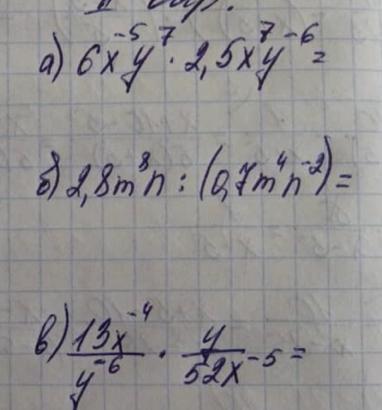 а) 6x⁻⁵y⁷ · 2,5x⁷y⁻⁶ =
б) 2,8m⁸n : (0,7m⁴n⁻²) =
в) 13x⁻⁴/y⁻⁶ · y/52x⁻⁵ =